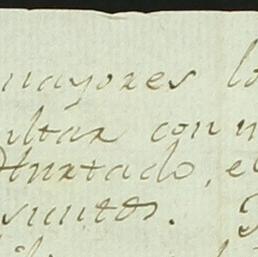 mayores lo
ultar con m
Hurtado, el
suntos.